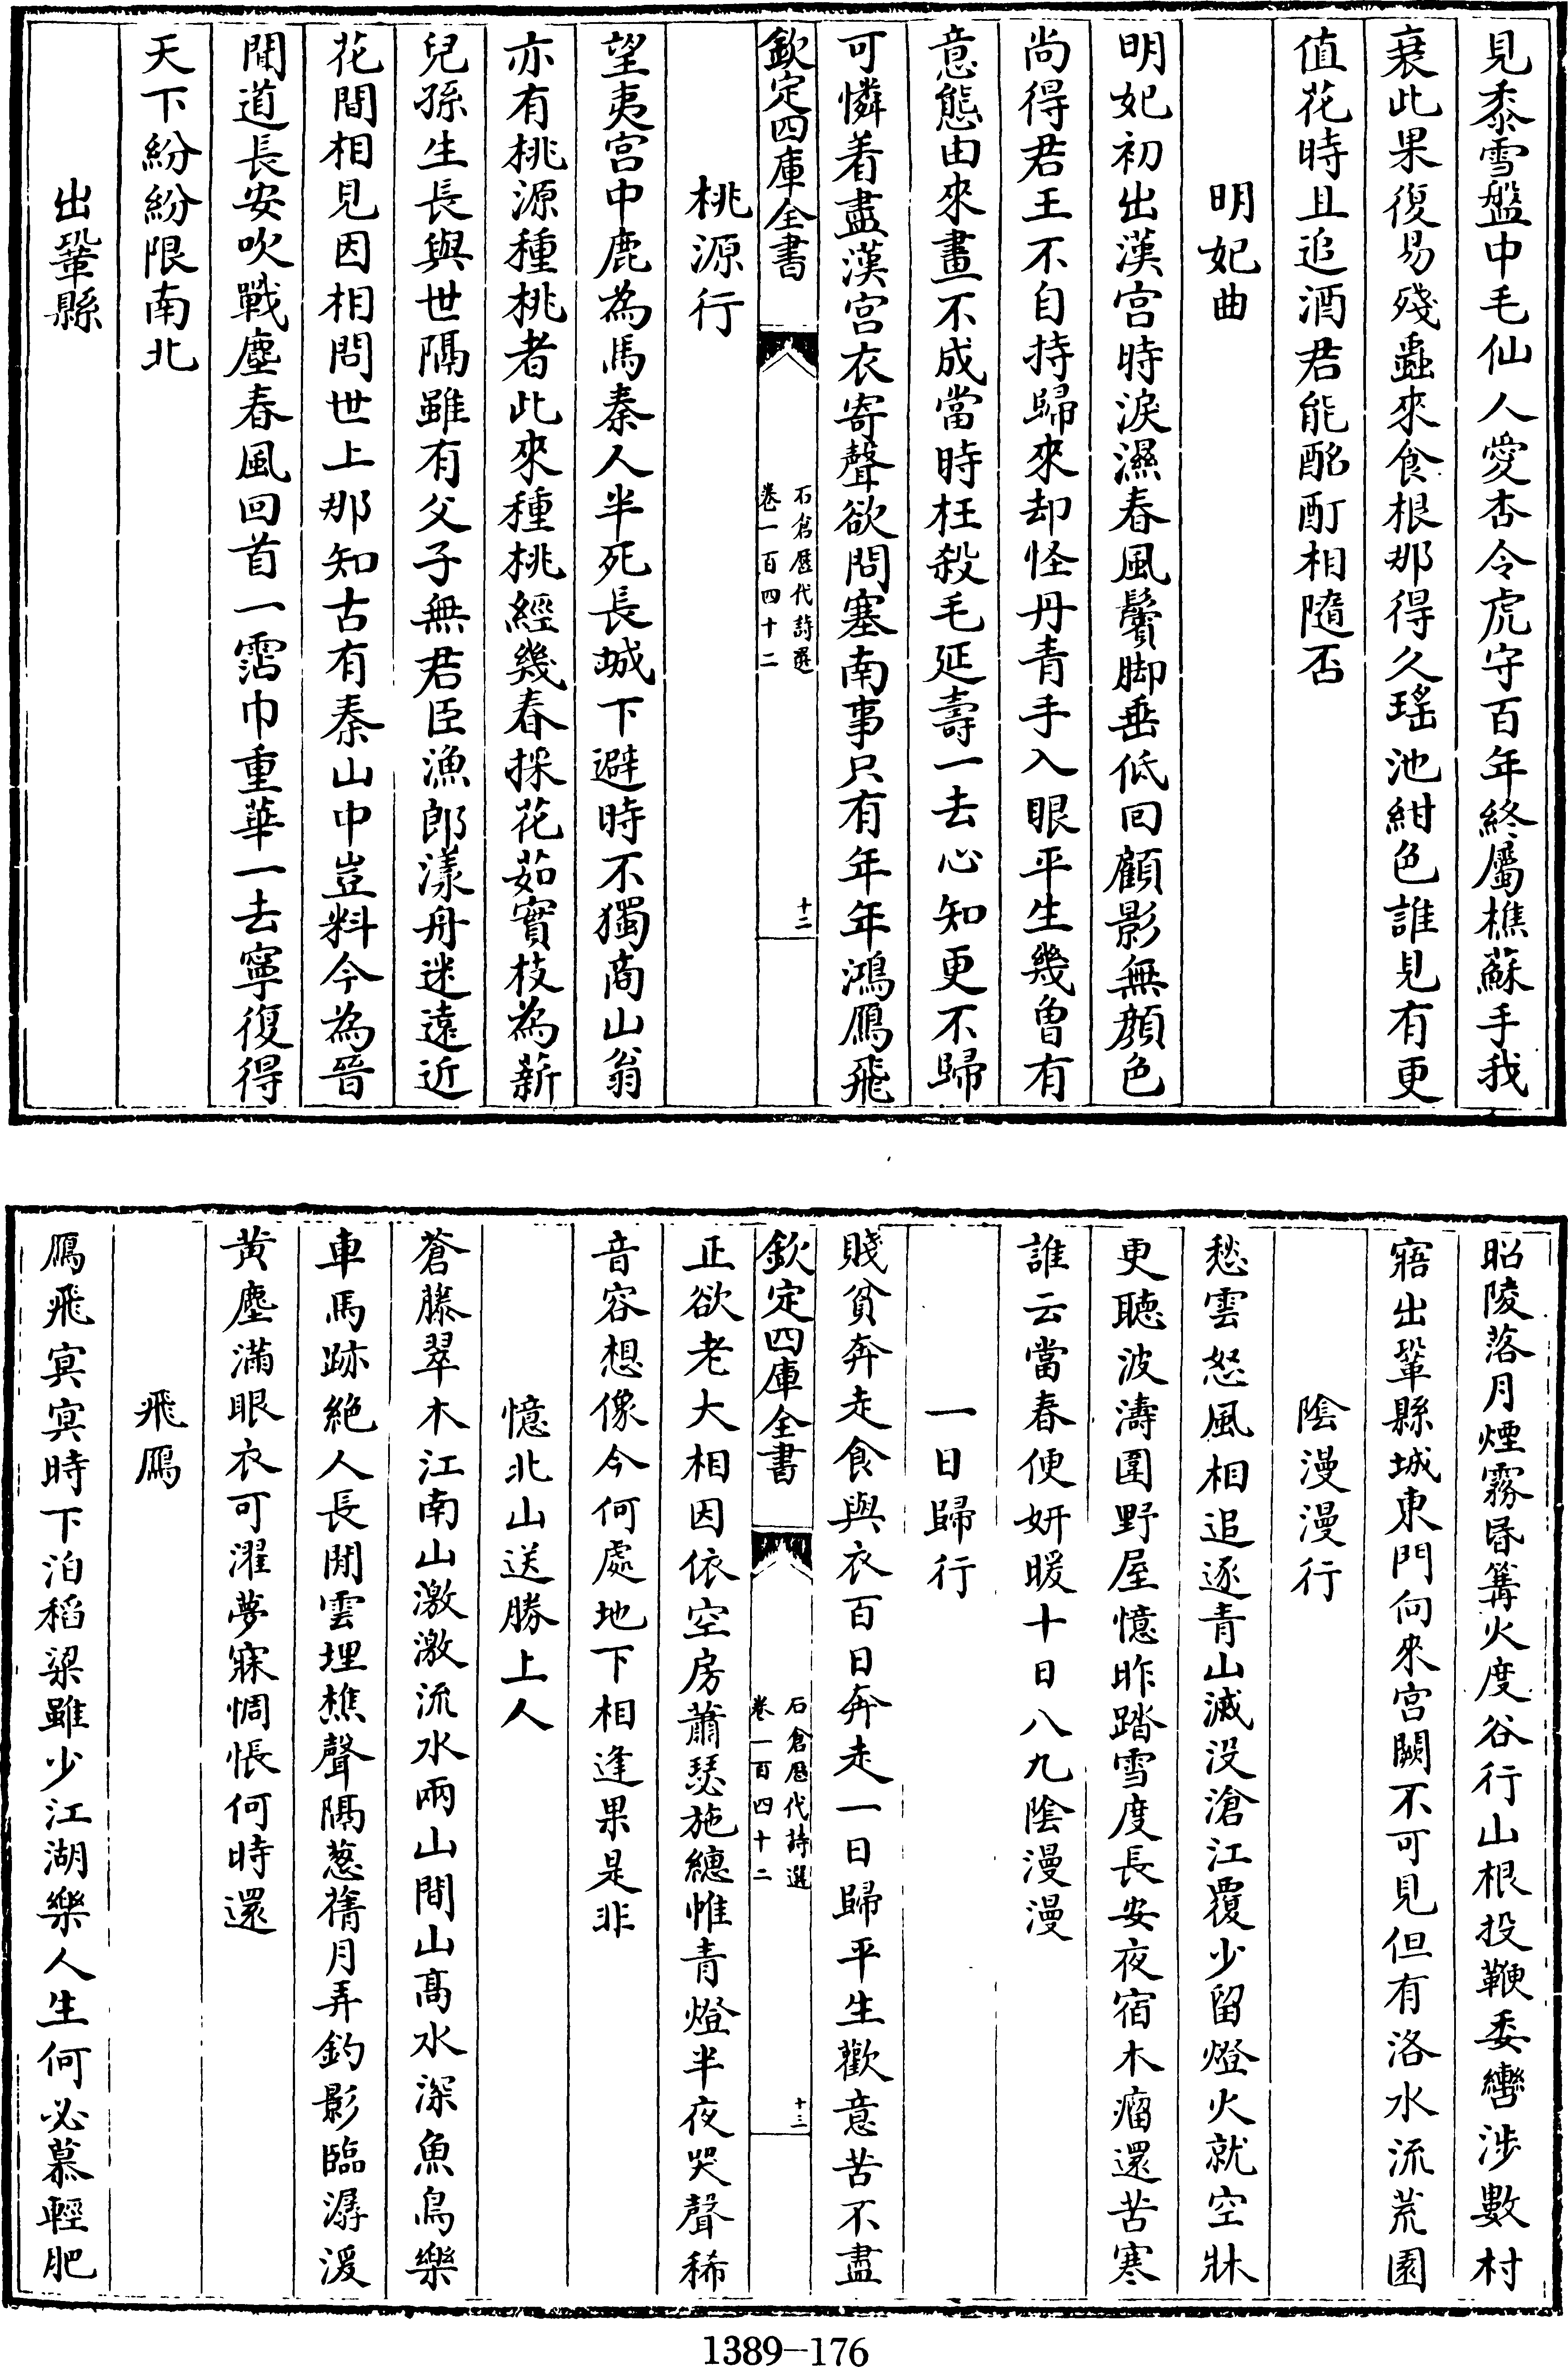 見黍雪盤中毛仙人愛杏令虎守百年終屬樵蘇手我
衰此果復易殘蟲來食根那得久瑤池紺色誰見有更
值花時且追酒君能酩酊相隨否
明妃曲
明妃初出漢宫時淚濕春風鬢脚垂低回顧影無顔色
尚得君王不自持歸來却怪丹青手入眼平生幾曾有
意態由來畫不成當時枉殺毛延壽一去心知更不歸
可憐着盡漢宫衣寄聲欲問塞南事只有年年鴻鴈飛
欽定四庫全書
石倉歷代詩選
卷一百四十二
十二
桃源行
望夷宫中鹿為馬秦人半死長城下避時不獨商山翁
亦有桃源種桃者此來種桃經幾春採花茹實枝為薪
兒孫生長與世隔雖有父子無君臣漁郎漾舟迷遠近
花間相見因相問世上那知古有秦山中豈料今為晉
聞道長安吹戰塵春風回首一霑巾重華一去寧復得
天下紛紛限南北
出鞏縣
昭陵落月煙霧昏篝火度谷行山根投鞭委轡涉數村
寤出鞏縣城東門向來宫闕不可見但有洛水流荒園
陰漫漫行
愁雲怒風相追逐青山滅没滄江覆少留燈火就空牀
更聽波濤圍野屋憶昨踏雪度長安夜宿木瘤還苦寒
誰云當春便妍暖十日八九陰漫漫
一日歸行
賤貧奔走食與衣百日奔走一日歸平生歡意苦不盡
欽定四庫全書
石倉歷代詩選
卷一百四十二
十三
正欲老大相因依空房蕭瑟施繐帷青燈半夜哭聲稀
音容想像今何處地下相逢果是非
憶北山送勝上人
蒼藤翠木江南山激激流水兩山間山高水深魚鳥樂
車馬跡絶人長閒雲埋樵聲隔葱蒨月弄釣影臨潺湲
黄塵滿眼衣可濯夢寐惆悵何時還
飛鴈
鴈飛冥冥時下泊稻粱雖少江湖樂人生何必慕輕肥
1389-176